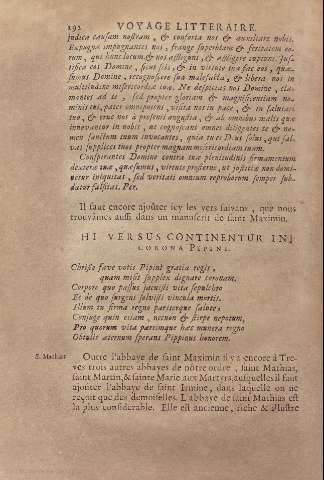 192 VOYAGE LITTERAIRE
judica causam nostram, & conforta nos & auxiliare nobis.
Expugna impugnantes nos, frange superbiam & feritatem eo-
rum, qui hunc locum & nos affligunt, & affligere cupiunt. Jus-
tifica eos Domine, sicut scis, & in virtute tua fac eos, quæ-
sumus Domine, recognoscere sua malefacta, & libera nos in
multitudine misericordiæ tuæ. Ne despicias nos Domine, cla-
mantes ad te, sed propter gloriam & magnificentiam no-
minis tui, pater omnipotens, visita nos in pace, & in salutari
tuo, & erue nos à præsenti angustia, & ab omnibus malis quæ
innovantur in nobis, ut cognoscant omnes diligentes te & no-
men sanctum tuum invocantes, quia tu es Deus solus, qui sal-
vas supplices tuos propter magnam misericordiam tuam.
Conspirantes Domine contra tuæ plenitudinis firmamentum
dexteræ tuæ, quæsumus, virtute prosterne, ut justitiæ non domi-
netur iniquitas, sed veritati omnium reproborum semper sub-
datur falsitas. Per.
Il faut encore ajoûter icy les vers suivans, que nous
trouvâmes aussi dans un manuscrit de saint Maximin.
HI VERSUS CONTINENTUR IN
CORONA PEPINI.
Christe fave votis Pipini gratia regis,
quam mihi supplex dignare coronam.
Corpore quo passus jacuisti vita sepulchro
Et de quo surgens solvisti vincula mortis.
Illum tu firma regno pariterque salute,
Conjuge quin etiam, necnon & stirpe nepotum,
Pro quorum vita pariterque hæc munera regno
Obtulit æternum sperans Pippinus honorem.
S. Mathias Outre l'abbaye de saint Maximin il y a encore à Tre-
ves trois autres abbayes de nôtre ordre, saint Mathias,
saint Martin, & sainte Marie aux Martyrs, ausquelles il faut
ajoûter l'abbaye de saint Irmine, dans laquelle on ne
reçoit que des demoiselles. L'abbaye de saint Mathias est
la plus considerable. Elle est ancienne, riche & illustre